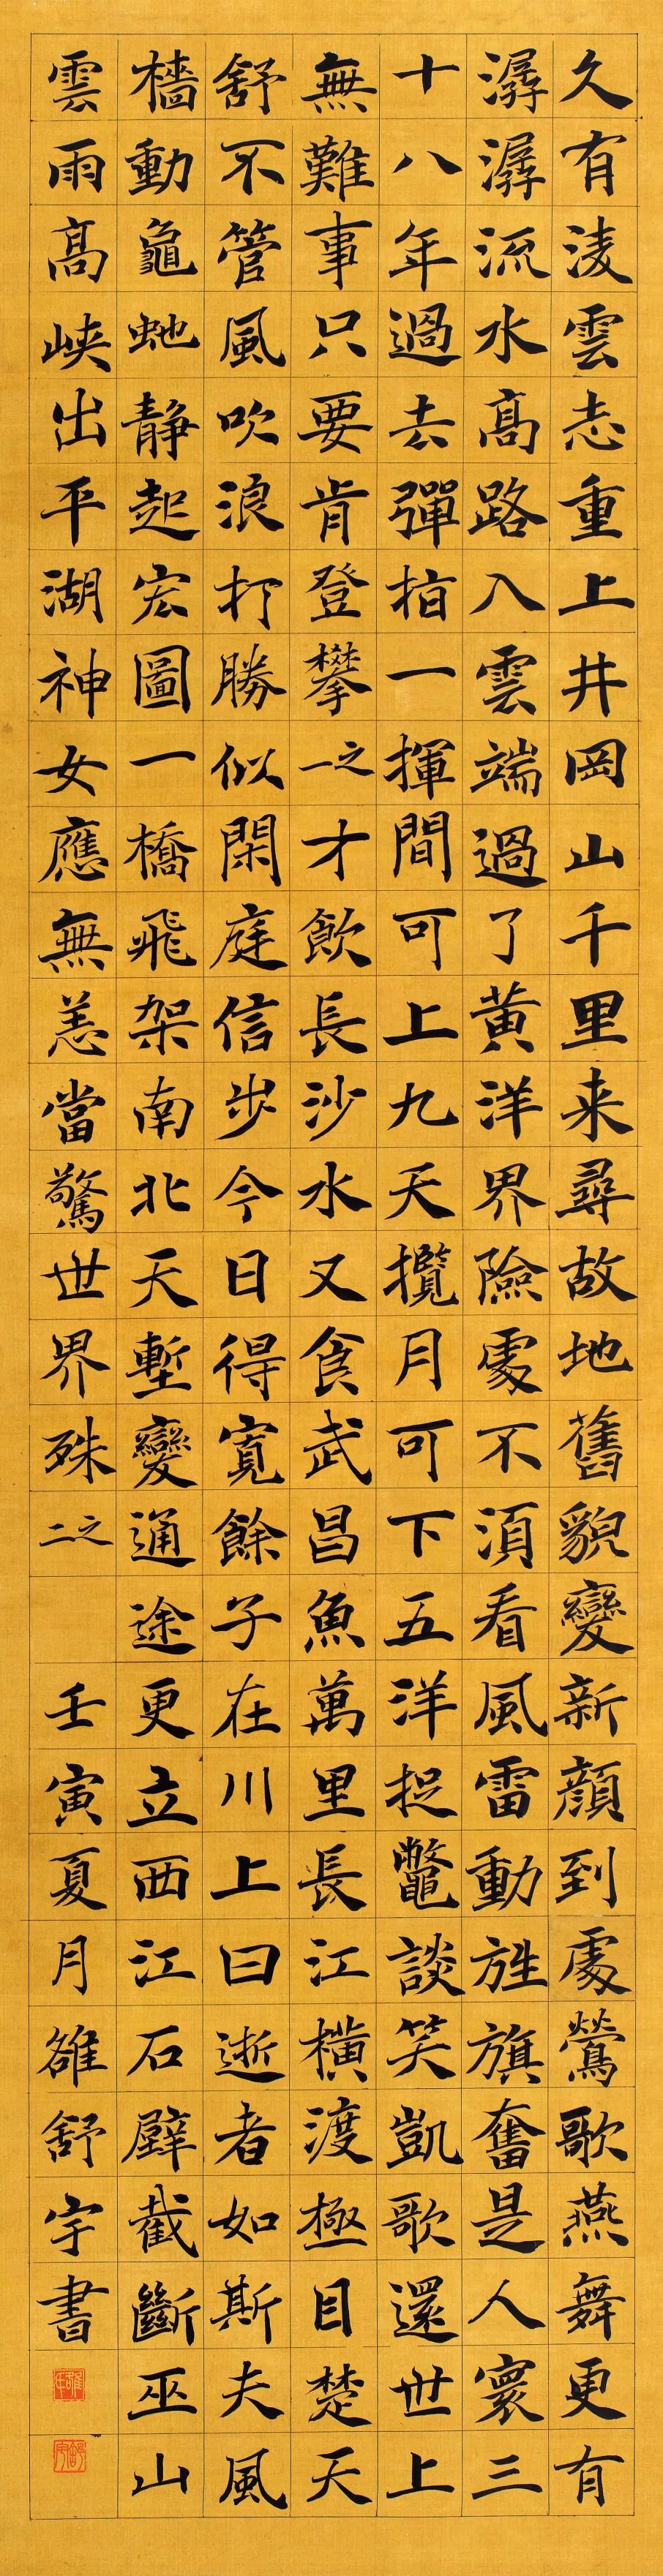 久有淩雲志重上井岡山千里来尋故地舊貌變新顔到處鶯歌燕舞更有
潺潺流水髙路入雲端過了黄洋界險處不須看風雷動旌旗奮是人寰三
十八年過去彈指一揮間可上九天攬月可下五洋捉鼈談笑凱歌還世上
無難事只要肯登攀之一才飲長沙水又食武昌魚萬里長江橫渡極目楚天
舒不管風吹浪打勝似閑庭信步今日得寬餘子在川上曰逝者如斯夫風
檣動龜虵静起宏圖一橋飛架南北天塹變通途更立西江石壁截斷巫山
雲雨髙峽出平湖神女應無恙當驚世界殊之二 壬寅夏月雒舒宇書